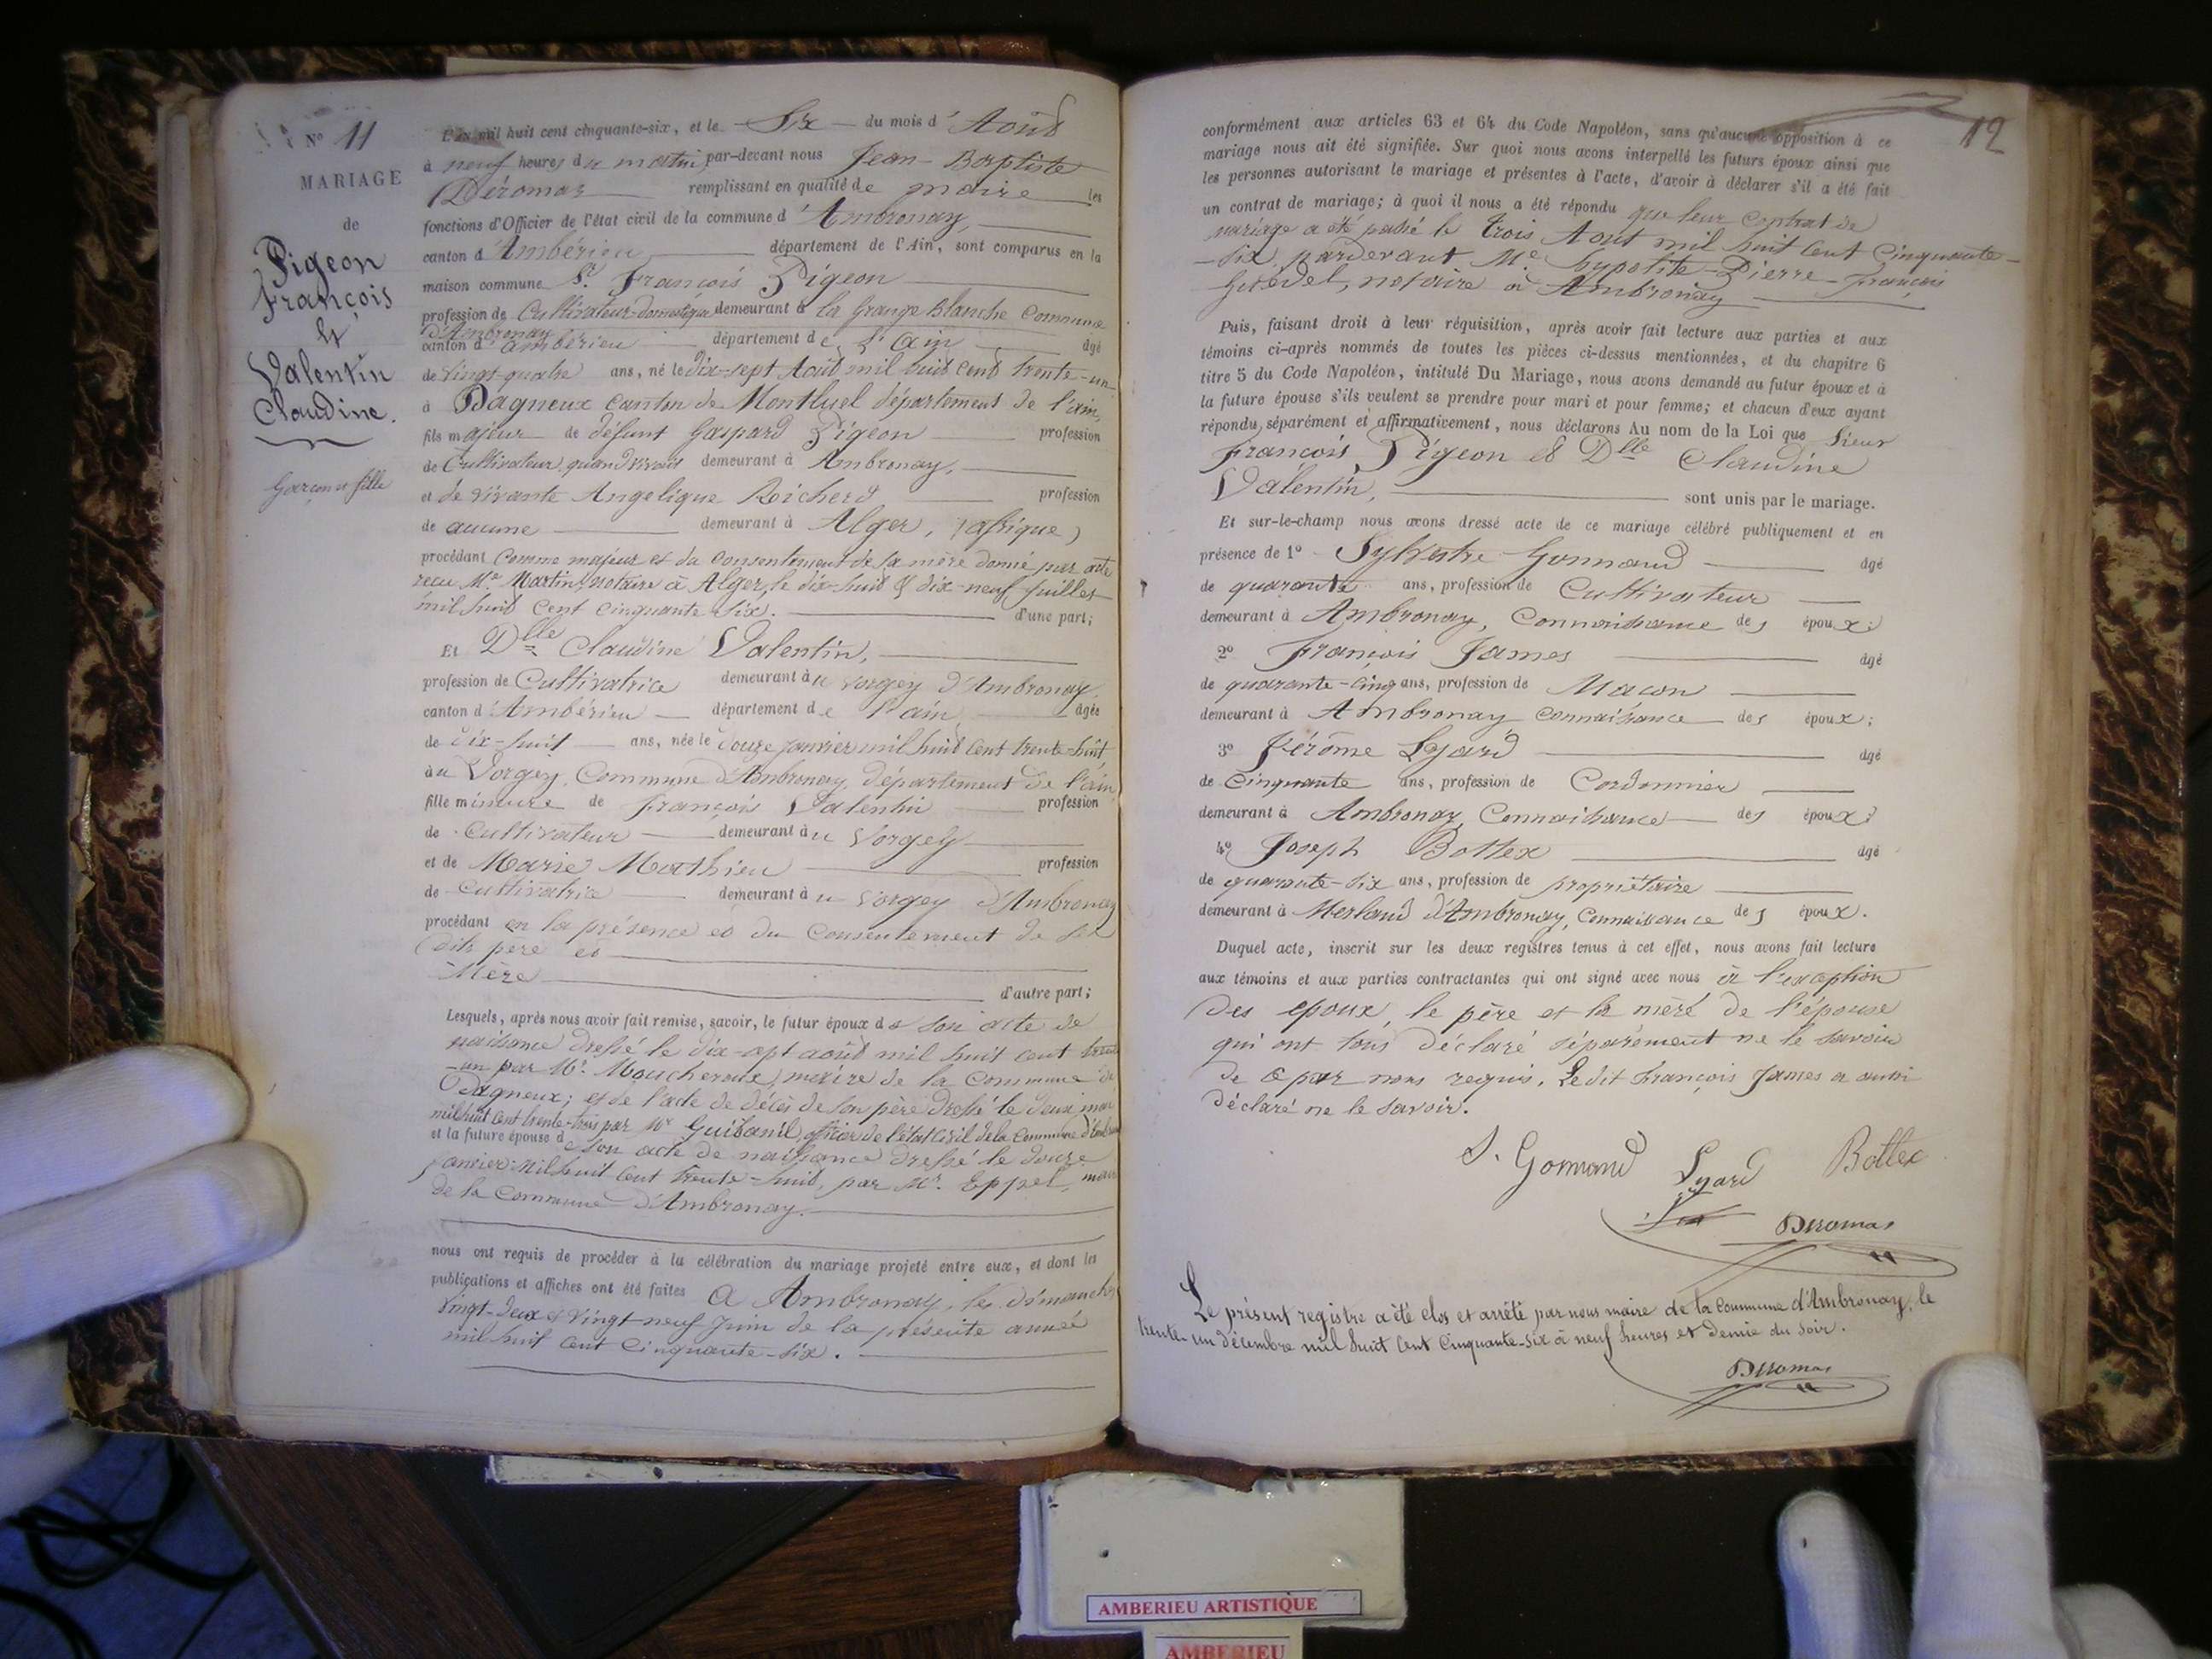 N° 11
MARIAGE
de
Pigeon
François
&
Valentin
Claudine.
Garçon et fille
L'an mil huit cent cinquante-six, et le Six du mois d'Août
à neuf heures du matin, par-devant nous Jean-Baptiste
Déromas remplissant en qualité de maire les
fonctions d'Officier de l'état civil de la commune d'Ambronay,
canton d'Ambérieu département de l'Ain, sont comparus en la
maison commune Sr. François Pigeon
profession de Cultivateur-domestique demeurant à la Grange Blanche Commune
d'Ambronay
canton d'ambérieu département de l'ain âgé
de vingt-quatre ans, né le dix-sept Août mil huit cent trente-un
à Dagneux canton de Montluel département de l'ain,
fils majeur de défunt Gaspard Pigeon profession
de Cultivateur, quand vivait demeurant à Ambronay,
et de vivante Angelique Reicherd profession
de aucune demeurant à Alger, (afrique)
procédant comme majeur et du consentement de sa mère donné par acte
recu Me. Martin, notaire à Alger, le dix-huit & dix-neuf juillet
mil huit cent cinquante-six. d'une part;
Et Dlle Claudine Valentin,
profession de Cultivatrice demeurant au Vorgey d'Ambronay
canton d'Ambérieu département de l'ain âgée
de dix-huit ans, née le douze janvier mil huit cent trente-huit
au Vorgey, Commune d'Ambronay, département de l'ain
fille mineure de François Valentin profession
de Cultivateur demeurant au Vorgey
et de Marie Mathieu profession
de Cultivatrice demeurant au Vorgey d'Ambronay
procédant en la présence et du consentement de ses
dits père et
Mère d'autre part;
Lesquels, après nous avoir fait remise, savoir, le futur époux de son acte de
naissance dressé le dix-sept août mil huit cent trente
un par Mr. Moucheroux, maire de la Commune de
Dagneux; et de l'acte de décès de son père dressé le deux mars
mil huit cent trente-trois par Mr officier de l'état civil de la Commune
et la future épouse de son acte de naissance dressé le douze
janvier mil huit cent trente-huit, par Mr. Eppel, maire
de la Commune d'Ambronay.
nous ont requis de procéder à la célébration du mariage projeté entre eux, et dont les
publications et affiches ont été faites a Ambronay, les dimanches
vingt-deux & vingt-neuf Juin de la présente année
mil huit cent cinquante-six.
12
conformément aux articles 63 et 64 du Code Napoléon, sans qu'aucune opposition à ce
mariage nous ait été signifiée. Sur quoi nous avons interpellé les futurs époux ainsi que
les personnes autorisant le mariage et présentes à l'acte, d'avoir à déclarer s'il a été fait
un contrat de mariage; à quoi il nous a été répondu que leur contrat de
mariage a été passé le trois Aout mil huit cent cinquante-
six, pardevant Me. hypolite-Pierre-françois
notaire à Ambronay
Puis, faisant droit à leur réquisition, après avoir fait lecture aux parties et aux
témoins ci-après nommés de toutes les pièces ci-dessus mentionnées, et du chapitre 6
titre 5 du Code Napoléon, intitulé Du Mariage, nous avons demandé au futur époux et à
la future épouse s'ils veulent se prendre pour mari et pour femme; et chacun d'eux ayant
répondu séparément et affirmativement, nous déclarons Au nom de la Loi que Sieur
François Pigeon et Dlle Claudine
Valentin, sont unis par le mariage.
Et sur-le-champ nous avons dressé acte de ce mariage célébré publiquement et en
présence de 1° Sylvestre Gonnand âgé
de quarante ans, profession de Cultivateur
demeurant à Ambronay, Connaissance des époux;
2° François James âgé
de quarante-cinq ans, profession de Maçon
demeurant à Ambronay connaissance des époux;
3° Jérôme Lyard âgé
de Cinquante ans, profession de Cordonnier
demeurant à Ambronay, Connaissance des époux;
4° Joseph Bottex âgé
de quarante-six ans, profession de propriétaire
demeurant à Merland d'Ambronay, Connaissance des époux.
Duquel acte, inscrit sur les deux registres tenus à cet effet, nous avons fait lecture
aux témoins et aux parties contractantes qui ont signé avec nous à l'exception
des epoux, le père et la mère de l'épouse
qui ont tous déclaré séparément ne le savoir
de ce par nous requis. Ledit François James a aussi
déclaré ne le savoir.
S. Gonnand Lyard Bottex
Deromas
Le présent registre a été clos et arrêté par nous maire de la Commune d'Ambronay, le
trente-un décembre mil huit cent cinquante-six à neuf heures et demie du soir.
Deromas
AMBERIEU ARTISTIQUE
AMBERIEU